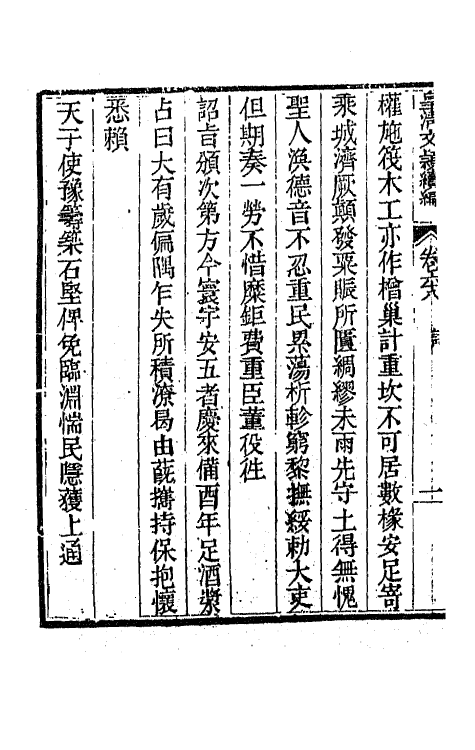 皇清文穎續編 卷六八 詩 二
權施筏木工亦作檜巢計重坎不可居數椽安足寄
乘城濟厥顛發粟賑所匱綢繆未雨先守土得無愧
聖人渙德音不忍重民累蕩析軫窮黎撫綏勅大吏
但期奏一勞不惜縻鉅費重臣董役徃
詔旨頒次第方今寰宇安五者慶來備酉年足酒漿
占曰大有歲偏隅乍失所積潦曷由蓺搘持保抱懷
悉賴
天子使豫籌築石堅俾免臨淵惴民隱獲上通